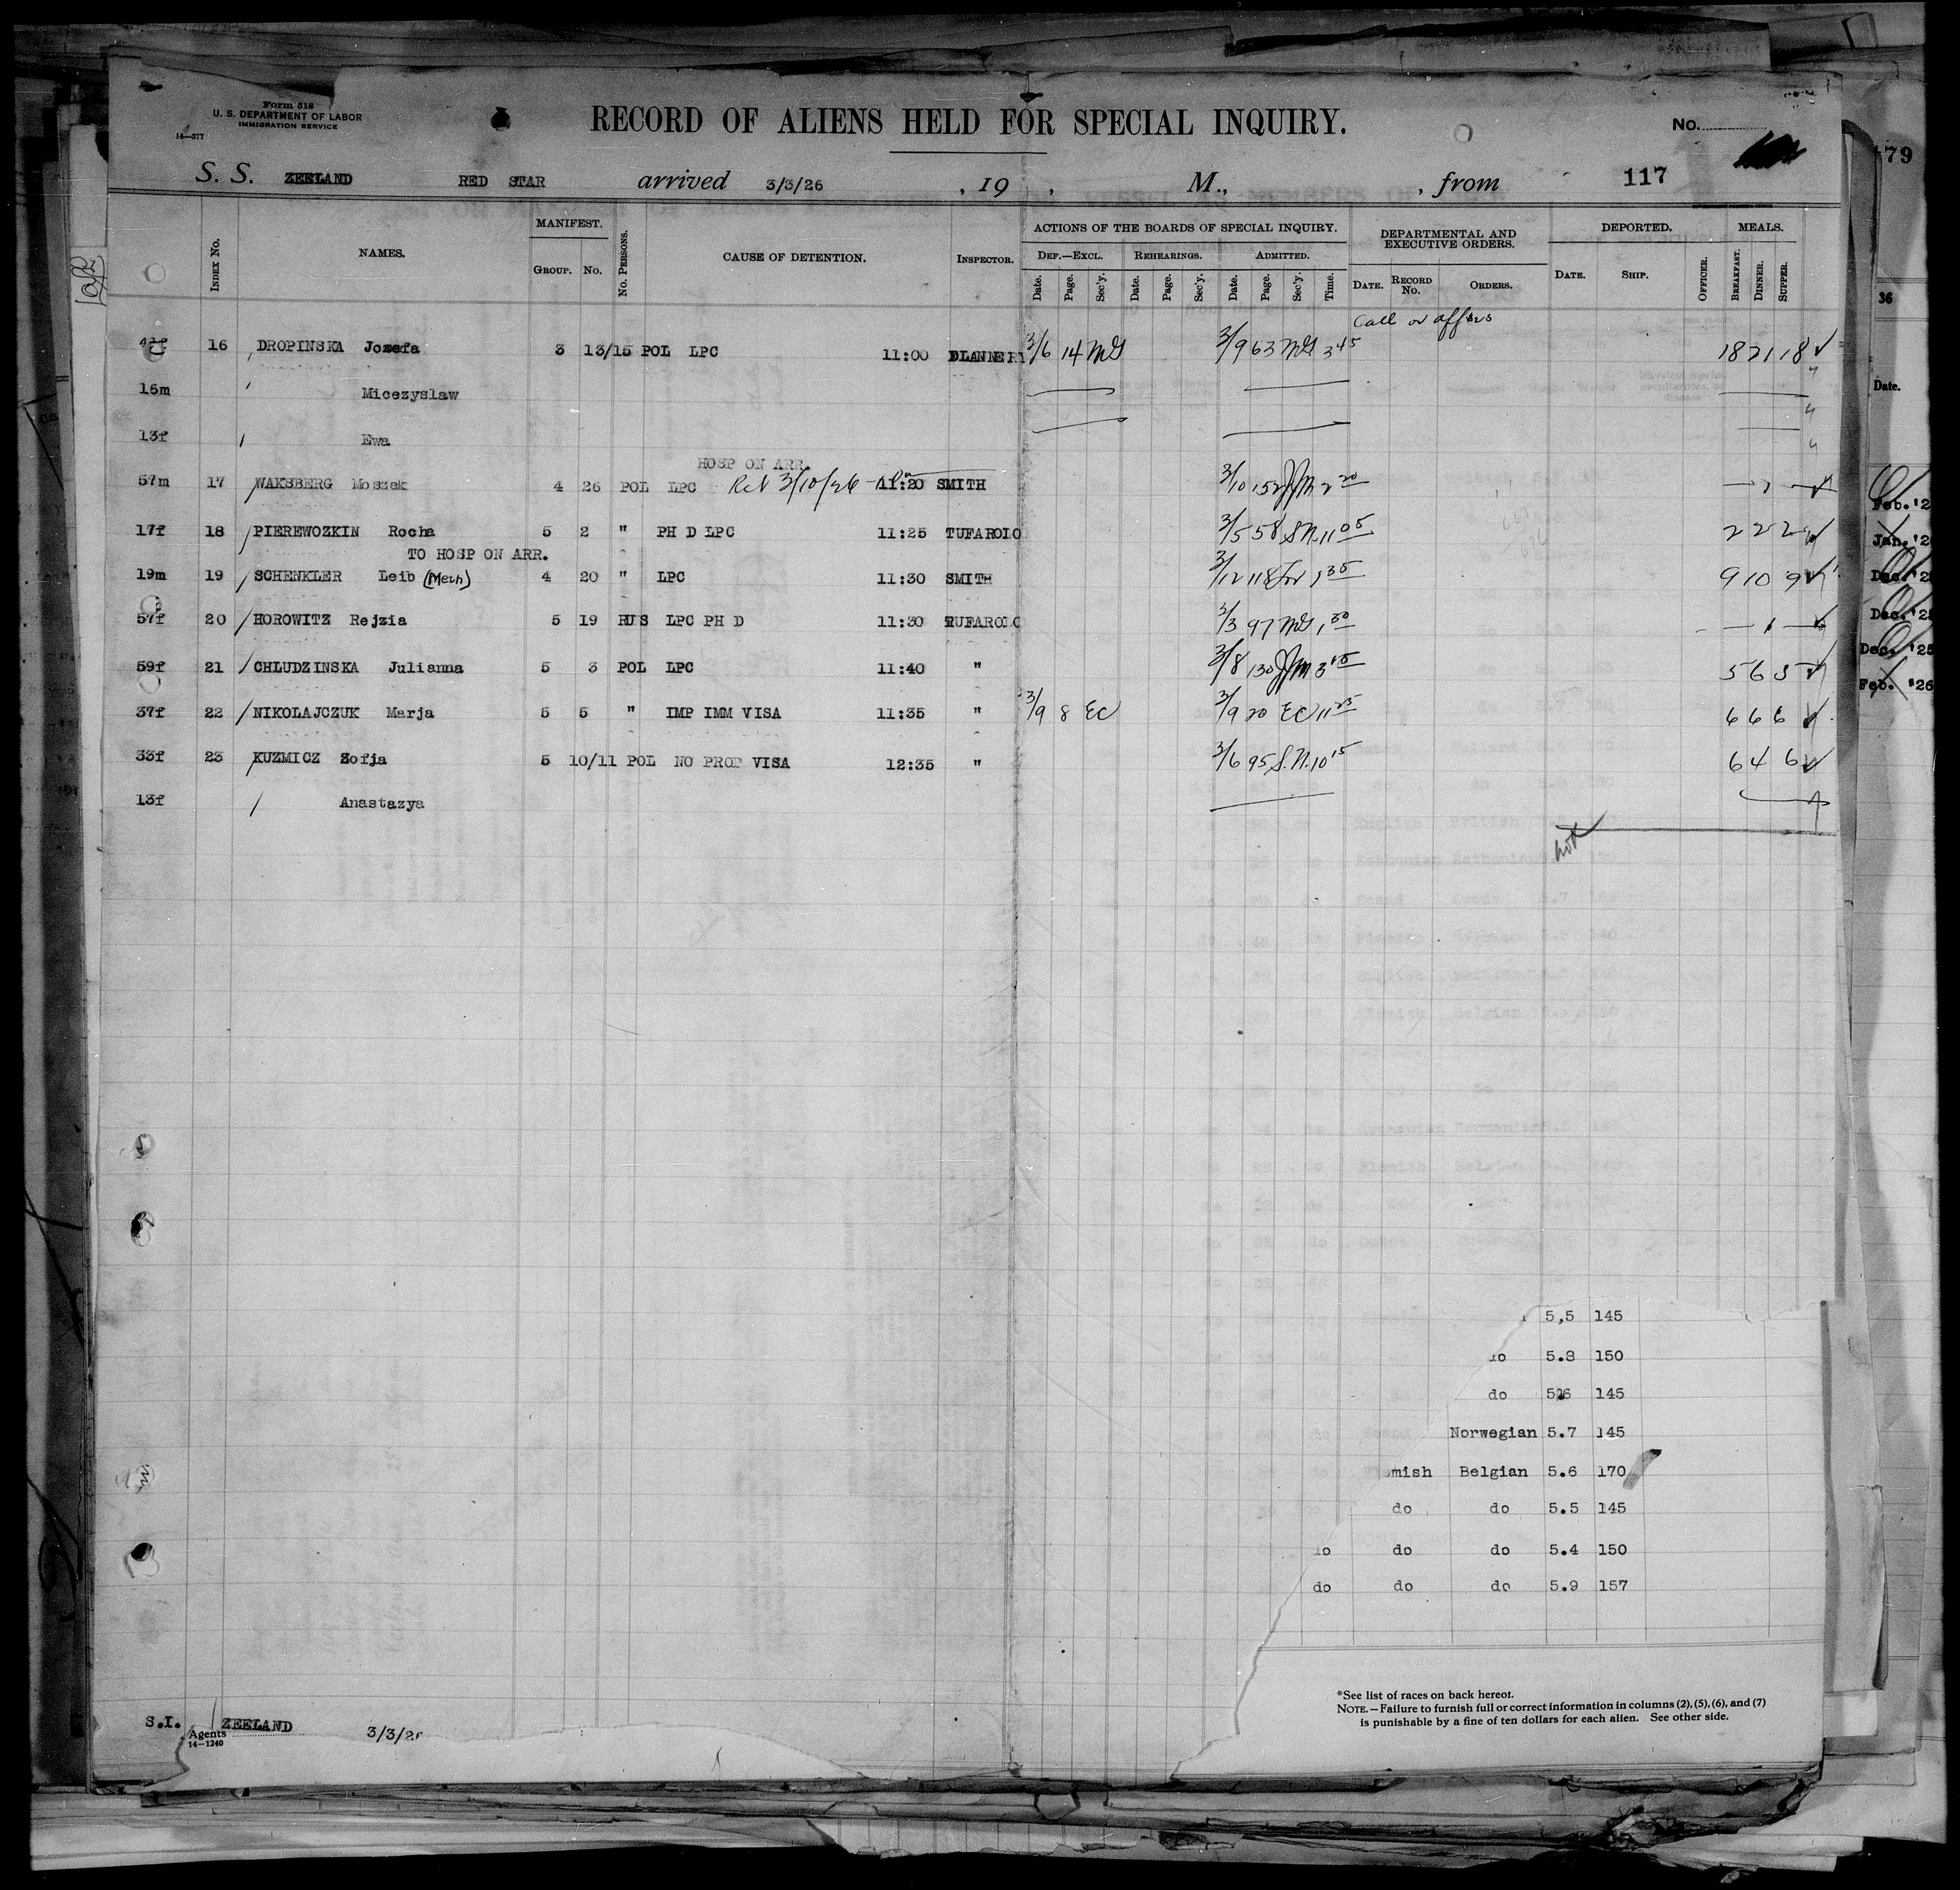 Form 518
U. S. DEPARTMENT OF LABOR
IMMIGRATION SERVICE
14—377
RECORD OF ALIENS HELD FOR SPECIAL INQUIRY.
No.
S. S. ZEELAND RED STAR arrived 3/3/26 , 19 , M., , from 117
79
INDEX No. NAMES. MANIFEST. GROUP. No. No. PERSONS. CAUSE OF DETENTION. INSPECTOR.
ACTIONS OF THE BOARDS OF SPECIAL INQUIRY.
DEF.—EXCL. REHEARINGS. ADMITTED.
Date. Page. Sec'y. Date. Page. Sec'y. Date. Page. Sec'y. Time.
DEPARTMENTAL AND EXECUTIVE ORDERS.
DATE. RECORD No. ORDERS.
DEPORTED.
DATE. SHIP. OFFICER.
MEALS.
BREAKFAST. DINNER. SUPPER.
36
Call or affvs
16 DROPINSKA Jozefa 3 13/15 POL LPC 11:00 3/6 14 MG 3/9 63 MG 3 45 18 21 18 ✓
Date.
16m Micezyslaw
13f Ewa
HOSP ON ARR.
57m 17 WAKSBERG Moszek 4 26 POL LPC Rel 3/10/26 11:20 SMITH 3/10 152 2 20
Feb. '2
17f 18 PIEREWOZKIN Rocha 5 2 " PH D LPC 11:25 TUFAROLO 3/5 58 S.N. 11 05 2 2 2
Jan. '2
TO HOSP ON ARR.
19m 19 SCHENKLER Leib (Mech) 4 20 " LPC 11:30 SMITH 3/12 118 1 35 9 10 9
Dec. '2
57f 20 HOROWITZ Rejzia 5 19 RUS LPC PH D 11:30 TUFAROLO 3/3 97 MG 1 50 — 1 —
Dec. '2
59f 21 CHLUDZINSKA Julianna 5 3 POL LPC 11:40 " 3/8 130 3 15 5 6 5
Dec. '25
37f 22 NIKOLAJCZUK Marja 5 5 " IMP IMM VISA 11:35 " 3/9 8 EC 3/9 20 EC 11 25 6 6 6
Feb. '26
33f 23 KUZMICZ Zofja 5 10/11 POL NO PROP VISA 12:35 " 3/6 95 S.N. 10 15 6 4 6
13f Anastazya
5,5 145
do 5.8 150
do 5.6 145
Norwegian 5.7 145
mish Belgian 5.6 170
do do 5.5 145
do do do 5.4 150
do do do 5.9 157
*See list of races on back hereof.
NOTE.—Failure to furnish full or correct information in columns (2), (5), (6), and (7)
is punishable by a fine of ten dollars for each alien. See other side.
S.I. ZEELAND 3/3/26
Agents
14—1240